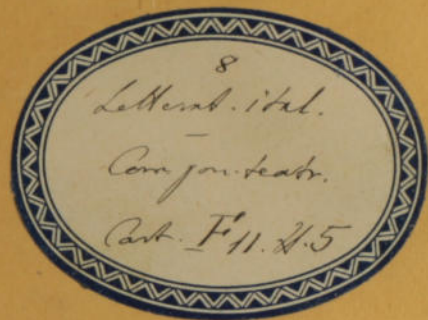 8
Letterat. ital.
Com pon. teatr.
Cart. F 11. 21.5